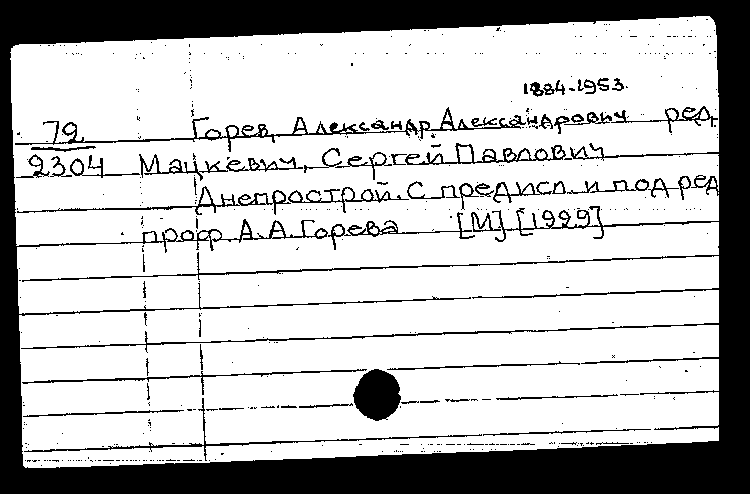 1884-1953.
72 Горев, Александр Александрович ред.
2304 Мацкевич, Сергей Павлович
Днепрострой. С предисл. и под ред
проф. А.А. Горева [М] [1929]